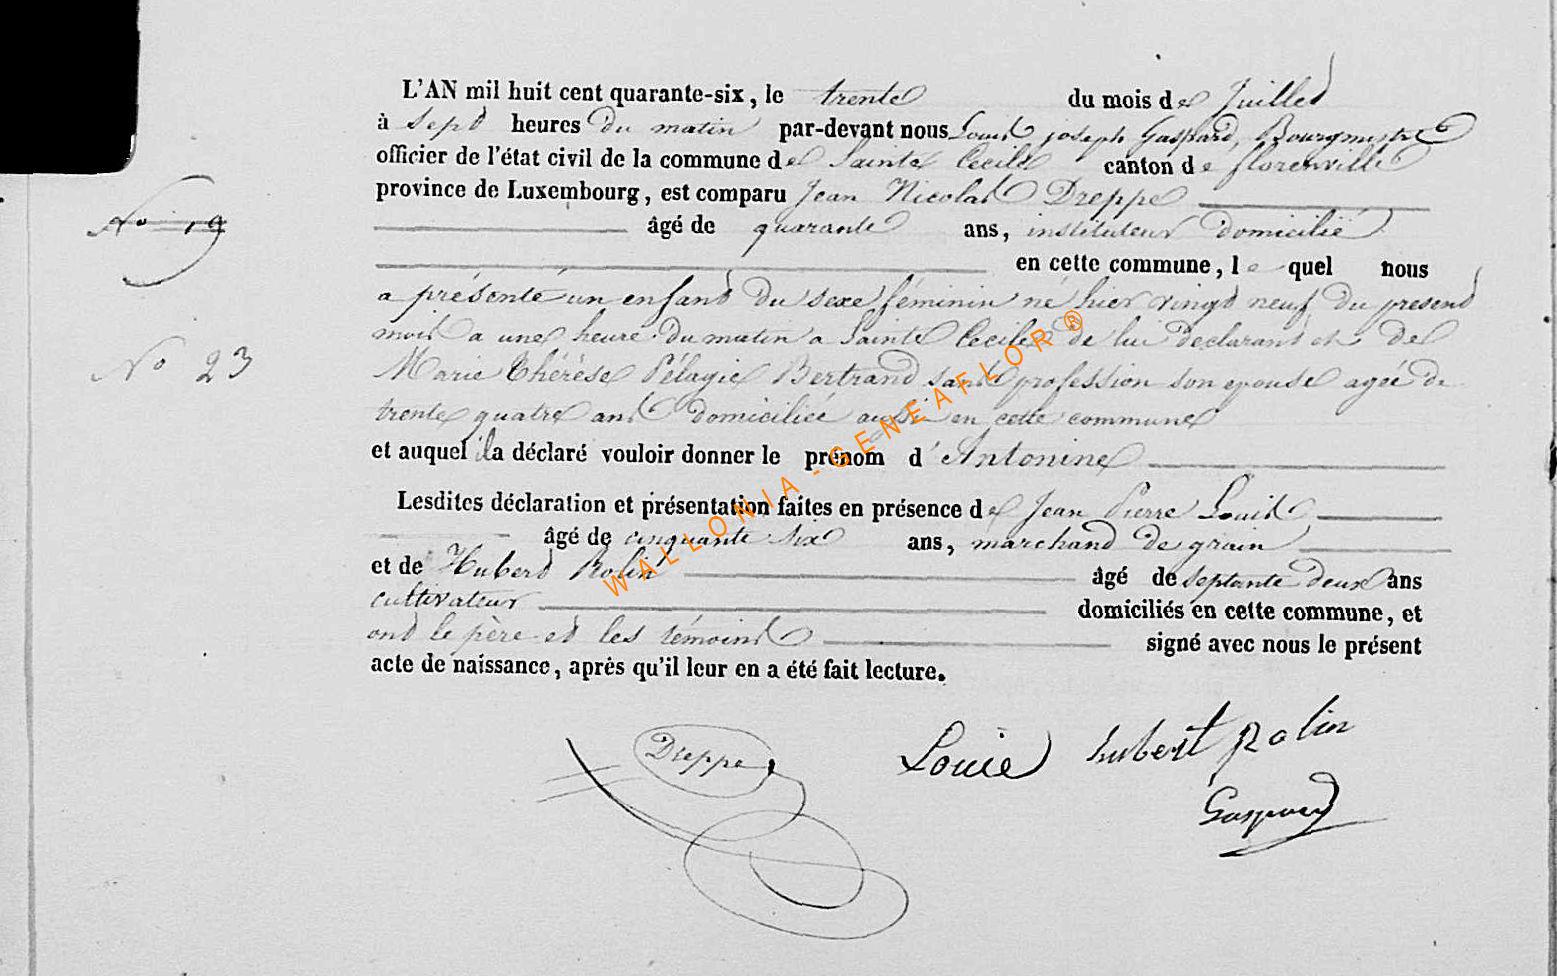 L'AN mil huit cent quarante-six, le trente du mois de Juillet
à sept heures du matin par-devant nous Louis joseph Gaspard, Bourgmestre
officier de l'état civil de la commune de Sainte Cecile canton de florenville
province de Luxembourg, est comparu Jean Nicolas Dreppe
N° 19
âgé de quarante ans, instituteur domicilié
en cette commune, le quel nous
a présenté un enfant du sexe féminin né hier vingt neuf du present
mois a une heure du matin a Sainte Cecile de lui declarant et de
N° 23
Marie Thérèse Pélagie Bertrand sans profession son epouse agée de
trente quatre ans domiciliée aussi en cette commune
et auquel il a déclaré vouloir donner le prénom d'Antonine
Lesdites déclaration et présentation faites en présence de Jean Pierre Louis
âgé de cinquante six ans, marchand de grain
et de Hubert Rolin âgé de septante deux ans
cultivateur domiciliés en cette commune, et
ont le père et les témoins signé avec nous le présent
acte de naissance, après qu'il leur en a été fait lecture.
Dreppe Louis hubert Rolin
Gaspard
WALLONIA-GENEAFLOR®